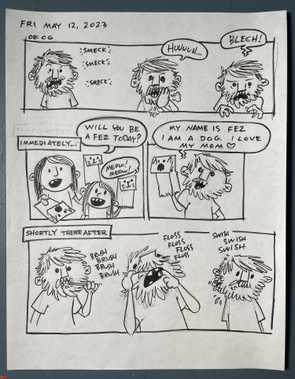 FRI MAY 12, 2023
06:06
SMECK
SMECK
SMECK
HUUUH...
BLECH!
IMMEDIATELY...
WILL YOU BE
A FEZ TODAY?
MEOW!
MEOW!
MY NAME IS FEZ
I AM A DOG. I LOVE
MY MOM ♡
SHORTLY THEREAFTER
BRUSH
BRUSH
BRUSH
BRUSH
FLOSS
FLOSS
FLOSS
FLOSS
SWISH
SWISH
SWISH